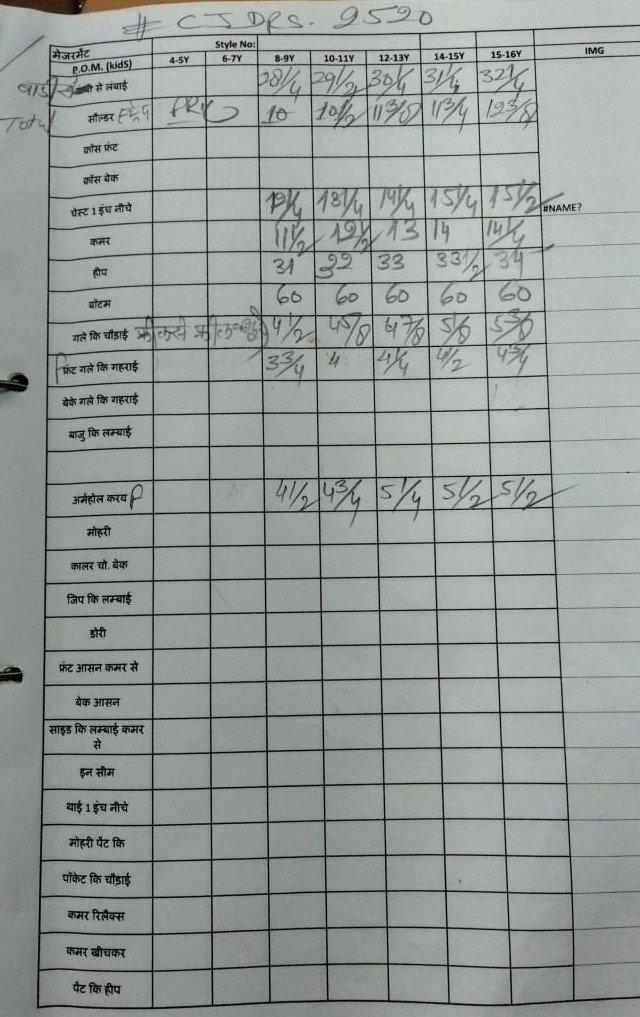 # CJDRS. 2520
मेजरमेंट Style No: IMG
P.O.M. (kidS) 4-5Y 6-7Y 8-9Y 10-11Y 12-13Y 14-15Y 15-16Y
से लंबाई 28 1/4 29 1/2 30 1/4 31 1/4 32 1/4
Total सोल्डर 10 10 1/2 11 3/8 11 3/4 12 3/8
क्रॉस फ्रंट
क्रॉस बेक
चेस्ट 1 इंच नीचे 12 1/4 13 1/4 14 1/4 15 1/4 15 1/2 #NAME?
कमर 11 1/2 12 1/2 13 14 14 1/4
हीप 31 32 33 33 1/2 34
बॉटम 60 60 60 60 60
गले कि चौड़ाई 4 1/2 4 5/8 4 7/8 5 1/8 5 3/8
फ्रंट गले कि गहराई 3 3/4 4 4 1/4 4 1/2 4 3/4
बेके गले कि गहराई
बाजु कि लम्बाई
अर्महोल करव 4 1/2 4 3/4 5 1/4 5 1/2 5 1/2
मोहरी
कालर चो. बेक
जिप कि लम्बाई
डोरी
फ्रंट आसन कमर से
बेक आसन
साइड कि लम्बाई कमर
से
इन सीम
थाई 1 इंच नीचे
मोहरी पेंट कि
पॉकेट कि चौड़ाई
कमर रिलैक्स
कमर खीचकर
पेंट कि हीप